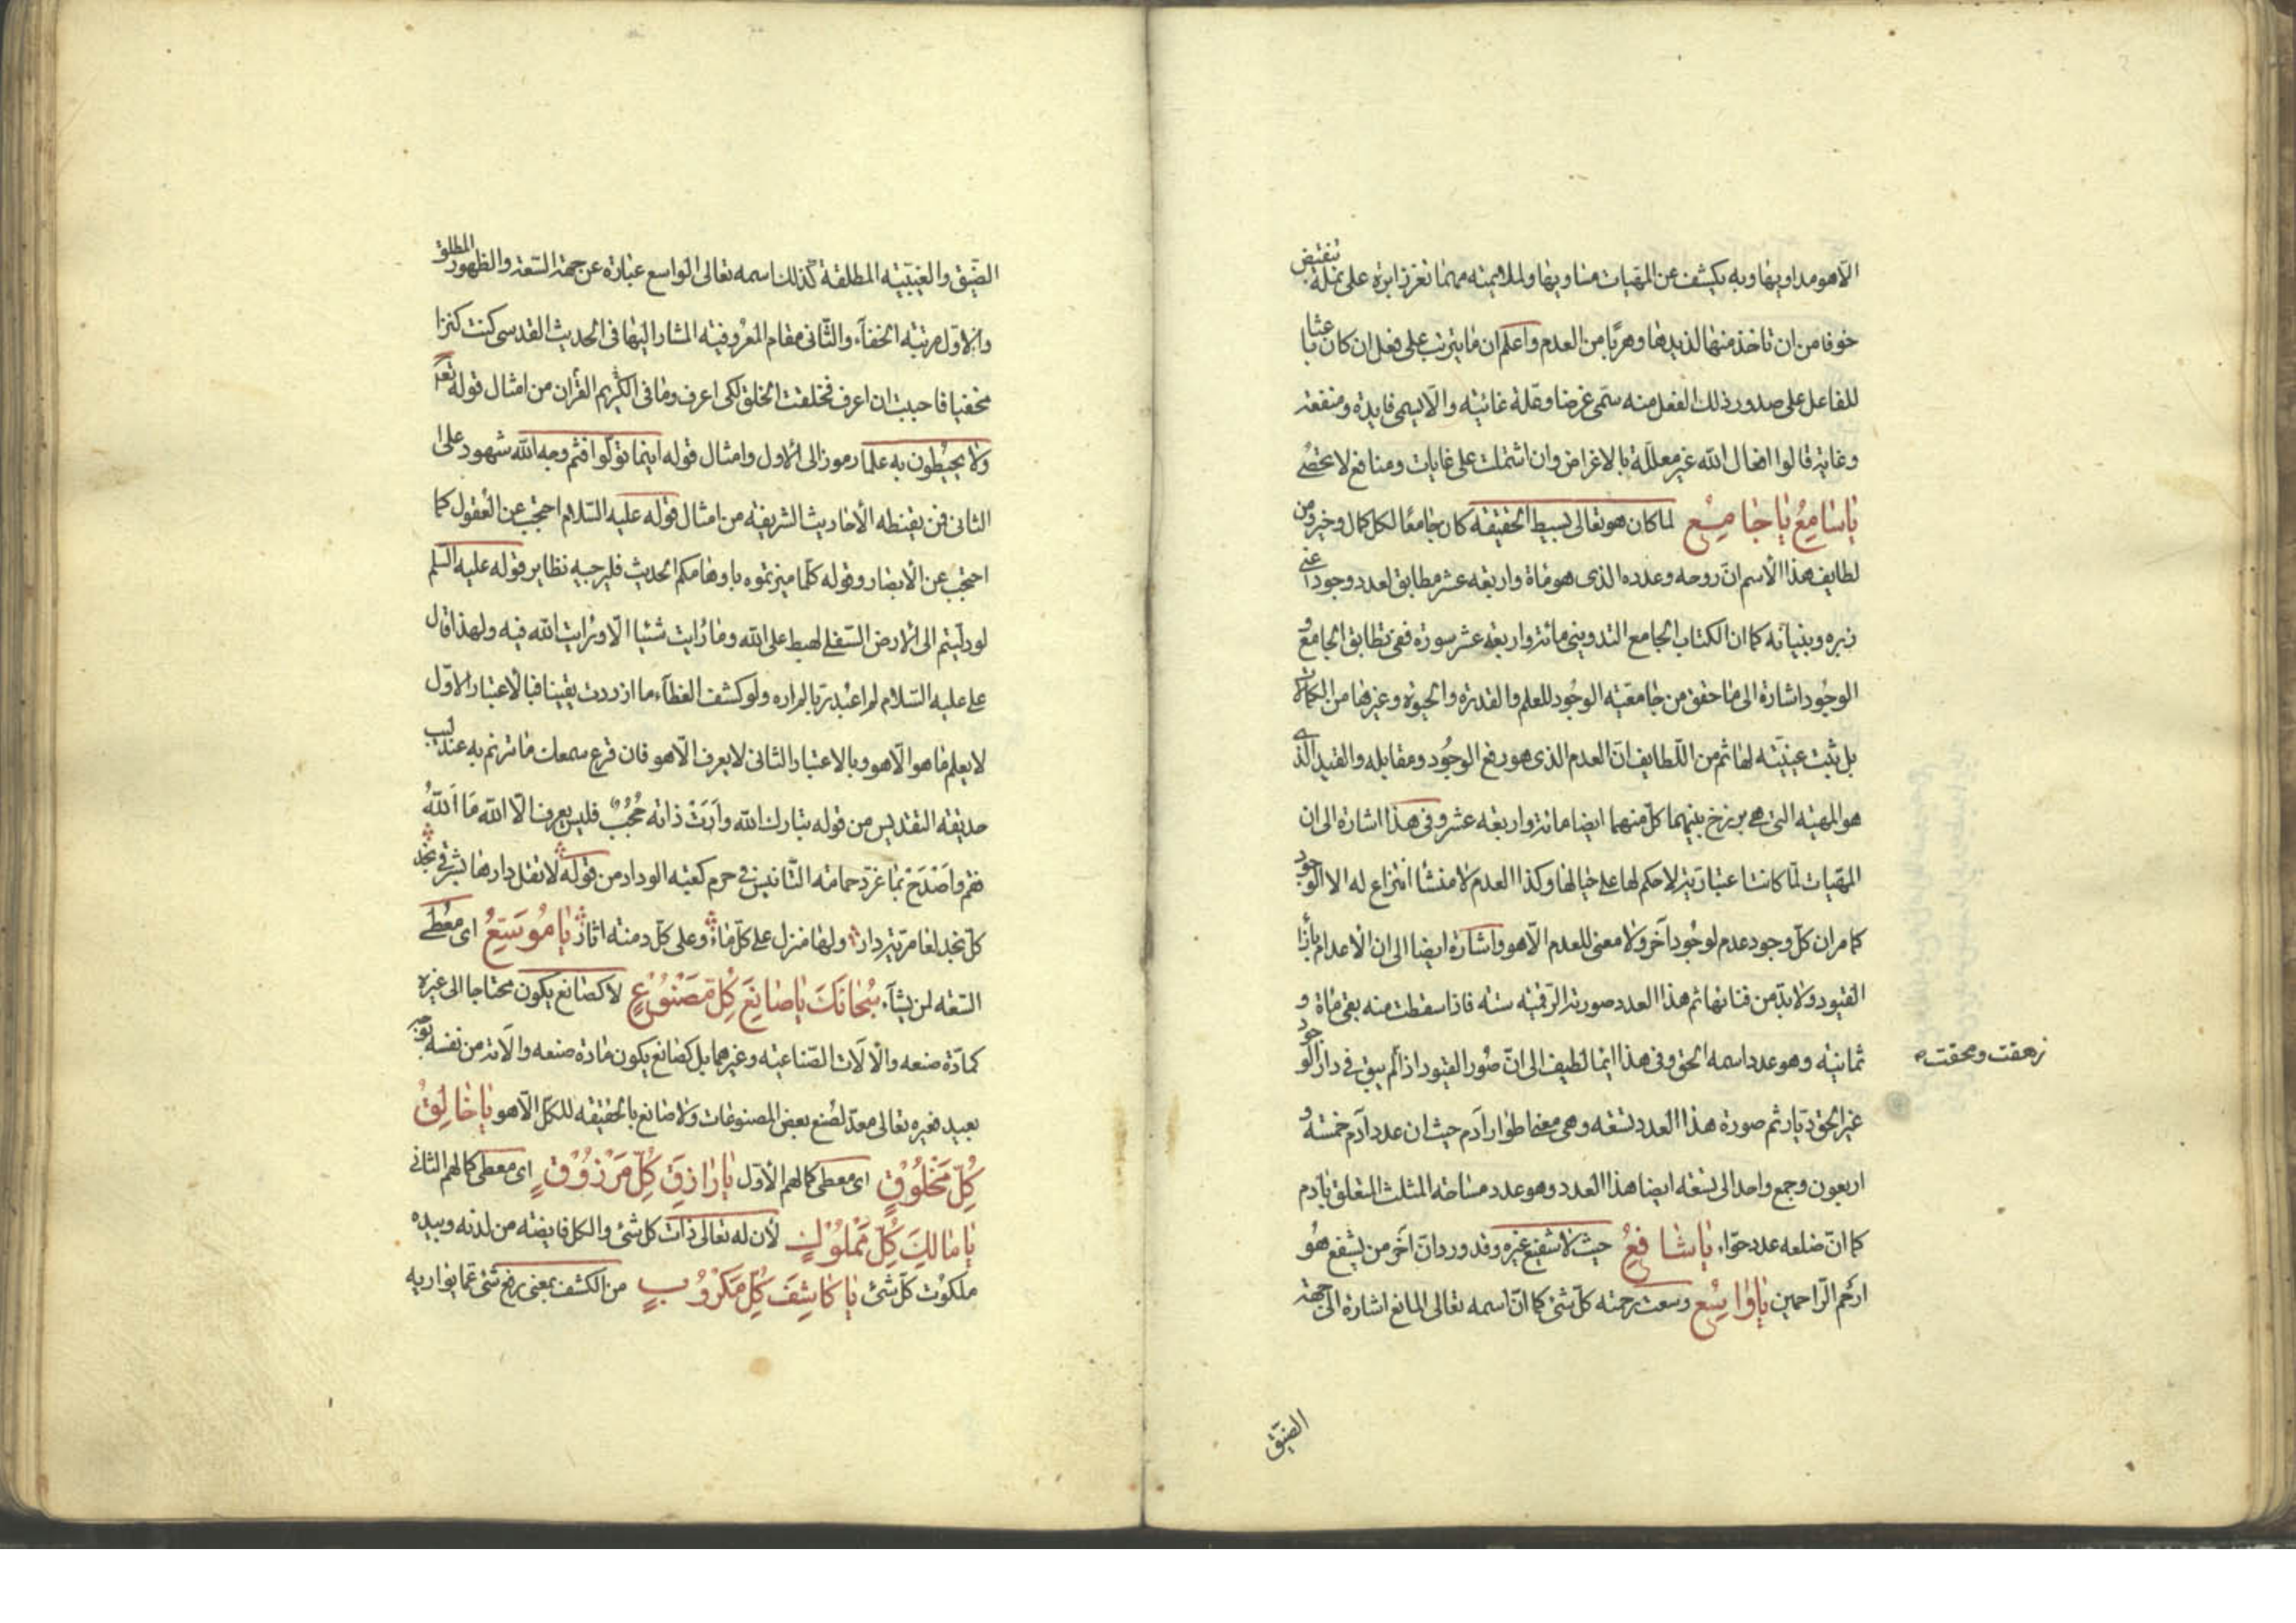 الا هو مداويها وبه يكشف عن المهيات مساويها ولملائيمته مهما تغرز ابرة على نملة تنقبض
خوفا من ان تاخذ منها لذيذها وهربا من العدم واعلم ان ما يترتب على فعل ان كان باعثا
للفاعل على صدور ذلك الفعل منه سمى غرضا وعلة غائيه والا يسمى فايدة ومنفعة
وغاية قالوا افعال الله غير معللة بالاغراض وان اشتملت على غايات ومنافع لا تحصى
يا سامع يا جامع لما كان هو تعالى بسيط الحقيقه كان جامعا لكل كمال وخير ومن
لطايف هذا الاسم ان روحه وعدده الذى هو مأة واربعه عشر مطابق لعدد وجود اعنى
زبره وبينياته كما ان الكتاب الجامع التدوينى مائة واربعه عشر سورة ففى تطابق الجامع و
الوجود اشارة الى ما حقق من جامعيه الوجود للعلم والقدرة والحيوة وغيرها من الكمالات
بل ثبت عينيته لها ثم من اللطايف ان العدم الذى هو رفع الوجود ومقابله والقيد الذى
هو المهيه التى هى برزخ بينهما كل منهما ايضا مائة واربعه عشر وفى هذا اشارة الى ان
المهيات لما كانت اعتبارية لا حكم لها على حيالها وكذا العدم لا منشأ انتزاع له الا الوجود
كما مر ان كل وجود عدم لوجود آخر ولا معنى للعدم الا هو واشارة ايضا الى ان الاعدام بأزا
القيود ولا بد من فنائها ثم هذا العدد صورته الرقميه سته فاذا سقطت منه بقى مأة و
ثمانيه وهو عدد اسمه الحق وفى هذا ايما لطيف الى ان صور القيود اذا لم يبق فى دار الوجود
زهقت ومحقت
غير الحق ديار ثم صورة هذا العدد تسعه وهى معنا طوار آدم حيث ان عدد آدم خمسة و
اربعون وجمع واحد الى تسعه ايضا هذا العدد وهو عدد مساحه المثلث المتعلق بآدم
كما ان ضلعه عدد حوا يا شافع حيث لا شفيع غيره وقد ورد ان آخر من يشفع هو
ارحم الراحمين يا واسع وسعت رحمته كل شئ كما ان اسمه تعالى المانع اشارة الى جهة
الضيق
الضيق والغيبيه المطلقة كذلك اسمه تعالى الواسع عبارة عن جهة السعة والظهور المطلق
والاول مرتبه الخفاء والثانى مقام المعروفيه المشار اليها فى الحديث القدسى كنت كنزا
مخفيا فاحببت ان اعرف فخلقت الخلق لكى اعرف وما فى الكريم القرآن من امثال قوله تعالى
ولا يحيطون به علما رموز الى الاول وامثال قوله اينما تولوا فثم وجه الله شهود على
الثانى فمن يقنطه الاحاديث الشريفه من امثال قوله عليه السلام احتجب عن العقول كما
احتجب عن الابصار وقوله كلما ميزتموه باوهامكم الحديث فليرجيه نظاير قوله عليه السلم
لو دليتم الى الارض السفلى لهبط على الله وما رأيت شيئا الا ورايت الله فيه ولهذا قال
على عليه السلام لم اعبد ربا لم اره ولو كشف الغطآء ما ازددت يقينا فبالاعتبار الاول
لا يعلم ما هو الا هو وبالاعتبار الثانى لا يعرف الا هو فان قرع سمعك ما ترنم به عندليب
حديقه التقديس من قوله تبارك الله وارت ذاته حجب فليس يعرف الا الله ما الله
فقم واصدح بما غرد حمامه التانيس فى حرم كعبه الوداد من قوله لا تقل دارها بشرقى نجد
كل نجد لعامرية دار ولها منزل على كل ماء وعلى كل دمنه اثار يا موسع اى معطى
السعه لمن يشآء سبحانك يا صانع كل مصنوع لا كصانع يكون محتاجا الى غيره
كمادة صنعه والالات الصناعيه وغيرهما بل كصانع يكون مادة صنعه والاته من نفسه
بعبيد فغيره تعالى معد لصنع بعض المصنوعات ولا صانع بالحقيقه للكل الا هو يا خالق
كل مخلوق اى معطى كمالهم الاول يا رازق كل مرزوق اى معطى كمالهم الثانى
يا مالك كل مملوك لان له تعالى ذات كل شئ والكل فايضه من لدنه وبيده
ملكوت كل شئ يا كاشف كل مكروب من الكشف بمعنى رفع شئ عما يواريه